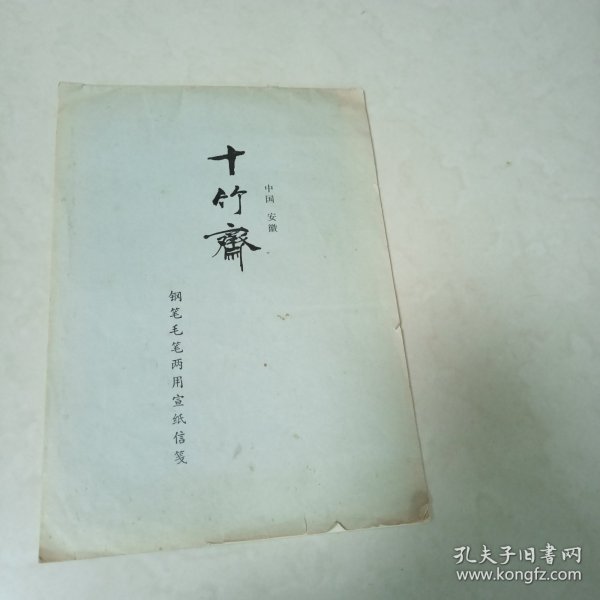 中国 安徽
十竹齋
钢笔毛笔两用宣纸信笺
孔夫子旧書网
www.kongfz.com